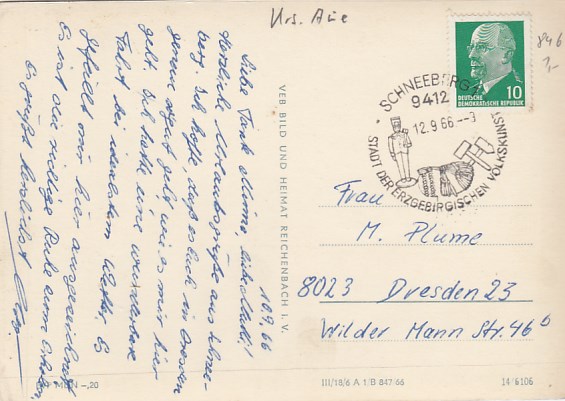 Krs. Aue
846
1,-
10.9.66
Liebe Tante Mieme, liebe
Herzliche Urlaubsgrüße aus Schnee-
berg. Ich hoffe, daß es Euch in Dresden
genau so gut geht, wie es mir hier
geht. Ich hatte eine wunderbare
Fahrt bei schönstem Wetter. Es
gefällt mir hier ausgezeichnet.
Es ist die nötige Ruhe zum Erholen.
Es grüßt herzlichst
VEB BILD UND HEIMAT REICHENBACH I. V.
DEUTSCHE
DEMOKRATISCHE REPUBLIK
10
SCHNEEBERG
9412
12.9.66
STADT DER ERZGEBIRGISCHEN VOLKSKUNST
Frau
M. Plume
8023 Dresden 23
Wilder Mann Str. 46 b
MDN -,20
III/18/6 A 1/B 847/66
14/6106